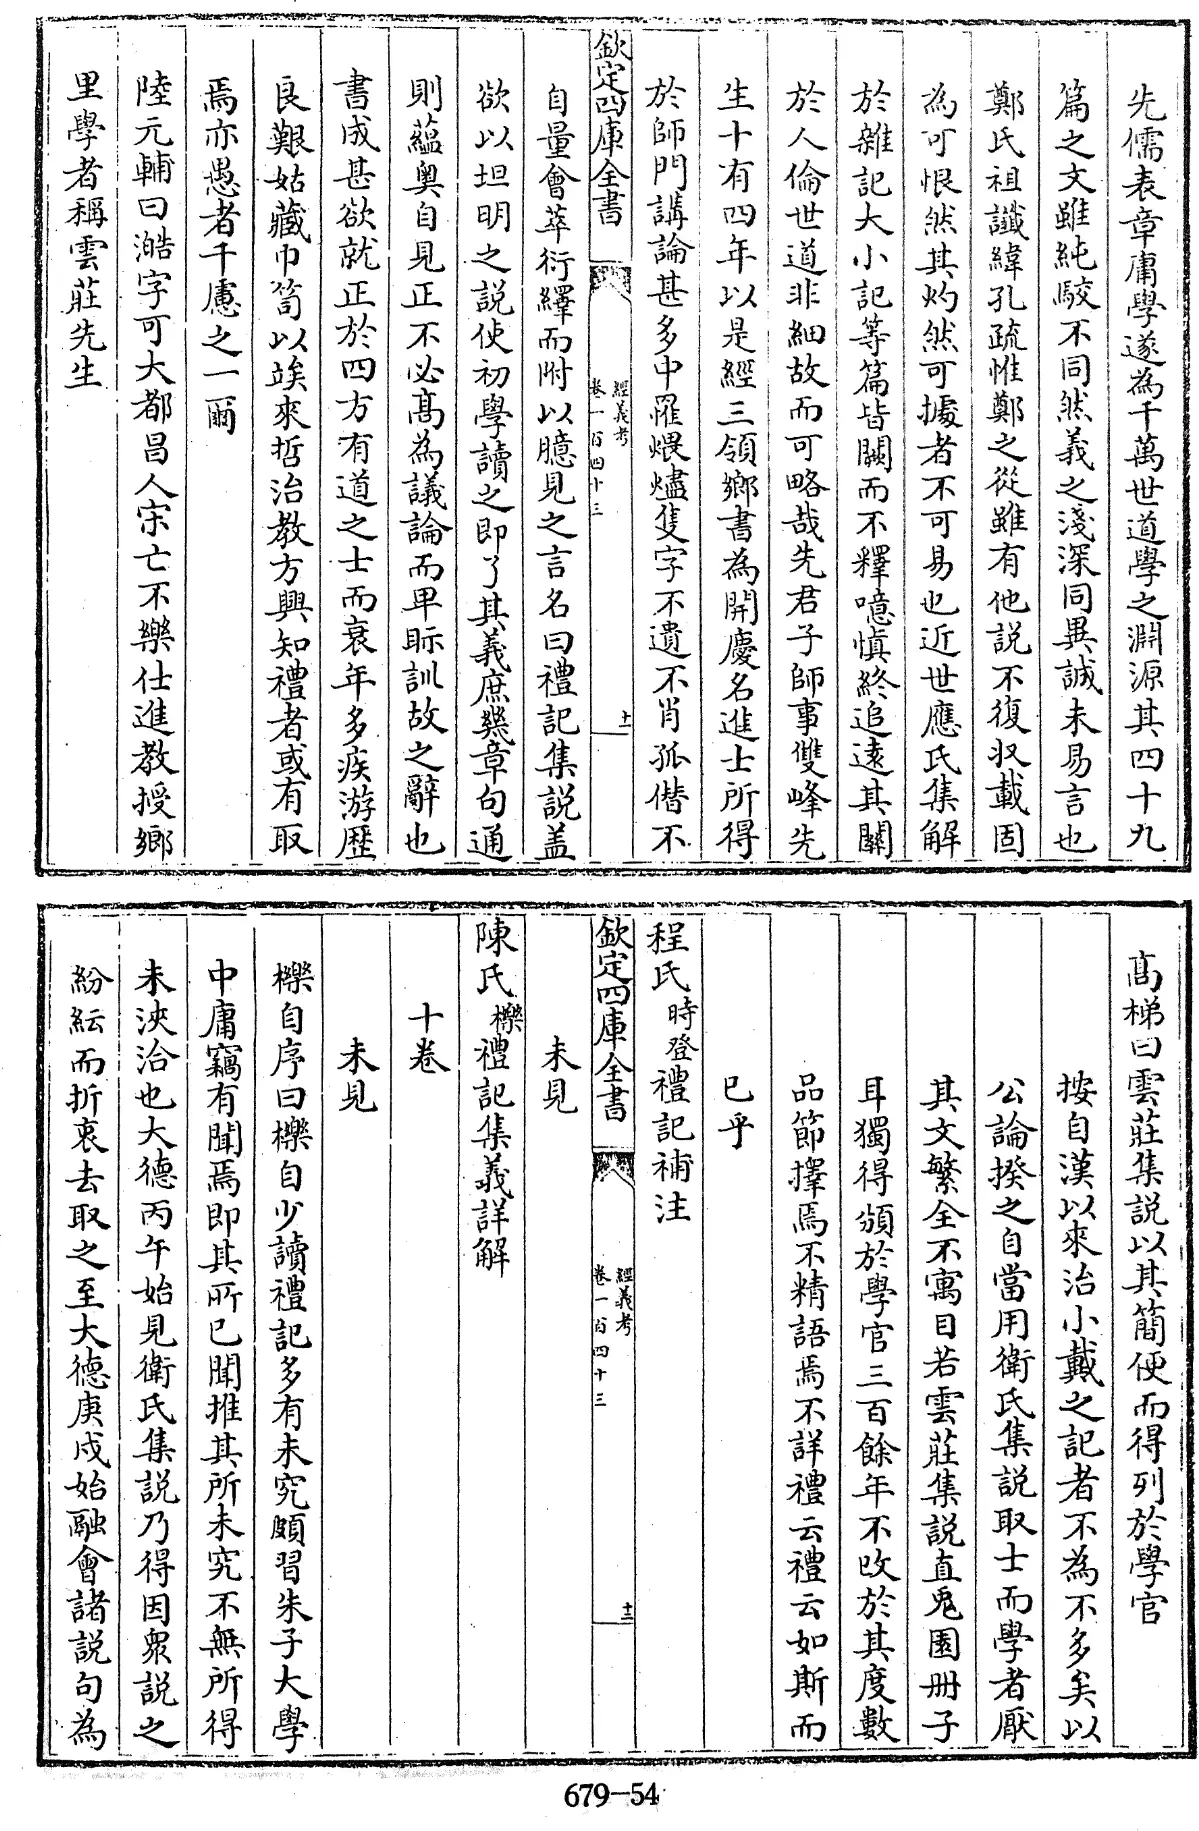 先儒表章庸學遂為千萬世道學之淵源其四十九
篇之文雖純駁不同然義之淺深同異誠未易言也
鄭氏祖讖緯孔疏惟鄭之從雖有他説不復収載固
為可恨然其灼然可據者不可易也近世應氏集解
於雜記大小記等篇皆闕而不釋噫慎終追遠其關
於人倫世道非細故而可略哉先君子師事雙峰先
生十有四年以是經三領鄉書為開慶名進士所得
於師門講論甚多中罹煨燼隻字不遺不肖孤僣不
欽定四庫全書
經義考
卷一百四十三
十一
自量會萃衍繹而附以臆見之言名曰禮記集説盖
欲以坦明之説使初學讀之即了其義庶幾章句通
則蘊奥自見正不必髙為議論而卑眎訓故之辭也
書成甚欲就正於四方有道之士而衰年多疾游歴
良艱姑藏巾笥以竢來哲治教方興知禮者或有取
焉亦愚者千慮之一爾
陸元輔曰澔字可大都昌人宋亡不樂仕進教授鄉
里學者稱雲莊先生
髙梯曰雲莊集説以其簡便而得列於學官
按自漢以來治小戴之記者不為不多矣以
公論揆之自當用衛氏集説取士而學者厭
其文繁全不寓目若雲莊集説直兎園册子
耳獨得頒於學官三百餘年不改於其度數
品節擇焉不精語焉不詳禮云禮云如斯而
已乎
程氏時登禮記補注
欽定四庫全書
經義考
卷一百四十三
十二
未見
陳氏櫟禮記集義詳解
十卷
未見
櫟自序曰櫟自少讀禮記多有未究頗習朱子大學
中庸竊有聞焉即其所已聞推其所未究不無所得
未浹洽也大德丙午始見衛氏集説乃得因衆説之
紛紜而折衷去取之至大德庚戍始融會諸説句為
679-54